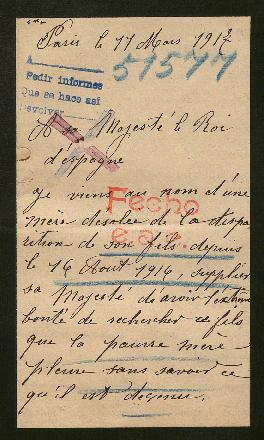 Paris le 17 Mars 1917
51577
A
Pedir informes
Que se hace así
Devolver
A sa Majesté le Roi
d'espagne
Fecho
je viens au nom d'une
mère desolée de la dispa
rition de son fils depuis
le 16 Aout 1916, supplier
sa Majesté d'avoir l'extrême
bonté de rechercher ce fils
que la pauvre mère
pleure sans savoir ce
qu'il est devenu.